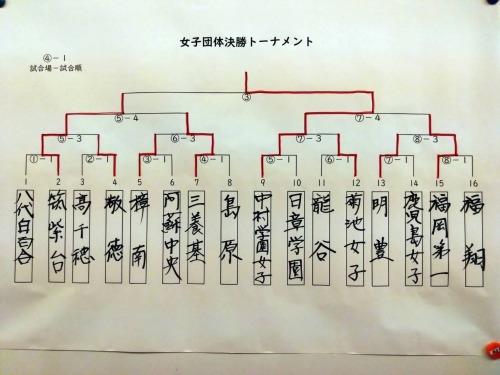 女子団体決勝トーナメント
④-1
試合場-試合順
③
⑤-4
⑦-4
⑤-3
⑥-3
⑦-3
⑧-3
①-1
②-1
③-1
④-1
⑤-1
⑥-1
⑦-1
⑧-1
1
2
3
4
5
6
7
8
9
10
11
12
13
14
15
16
八代白百合
筑紫台
高千穂
敬徳
樟南
阿蘇中央
三養基
島原
中村学園女子
日章学園
龍谷
菊池女子
明豊
鹿児島女子
福岡第一
福翔